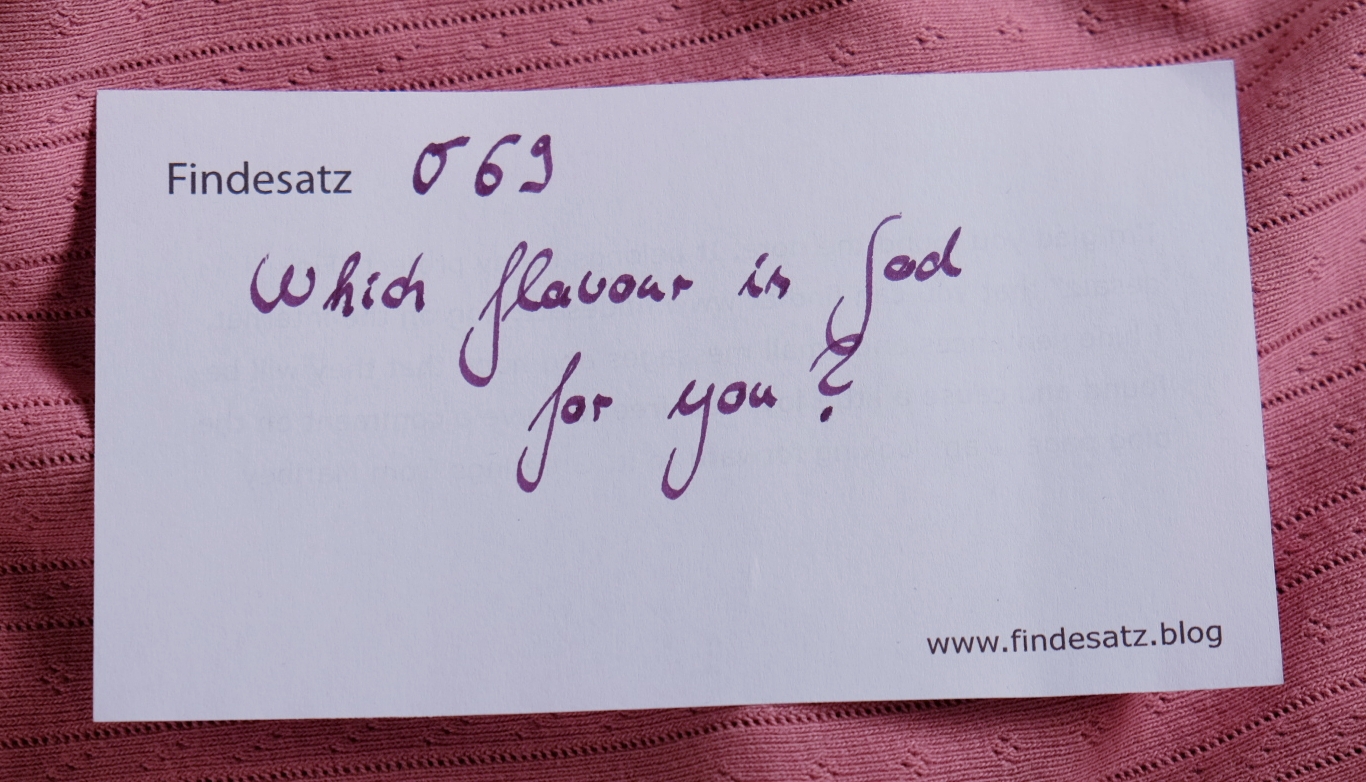 Findesatz 069
Which flavour is sad
for you?
www.findesatz.blog